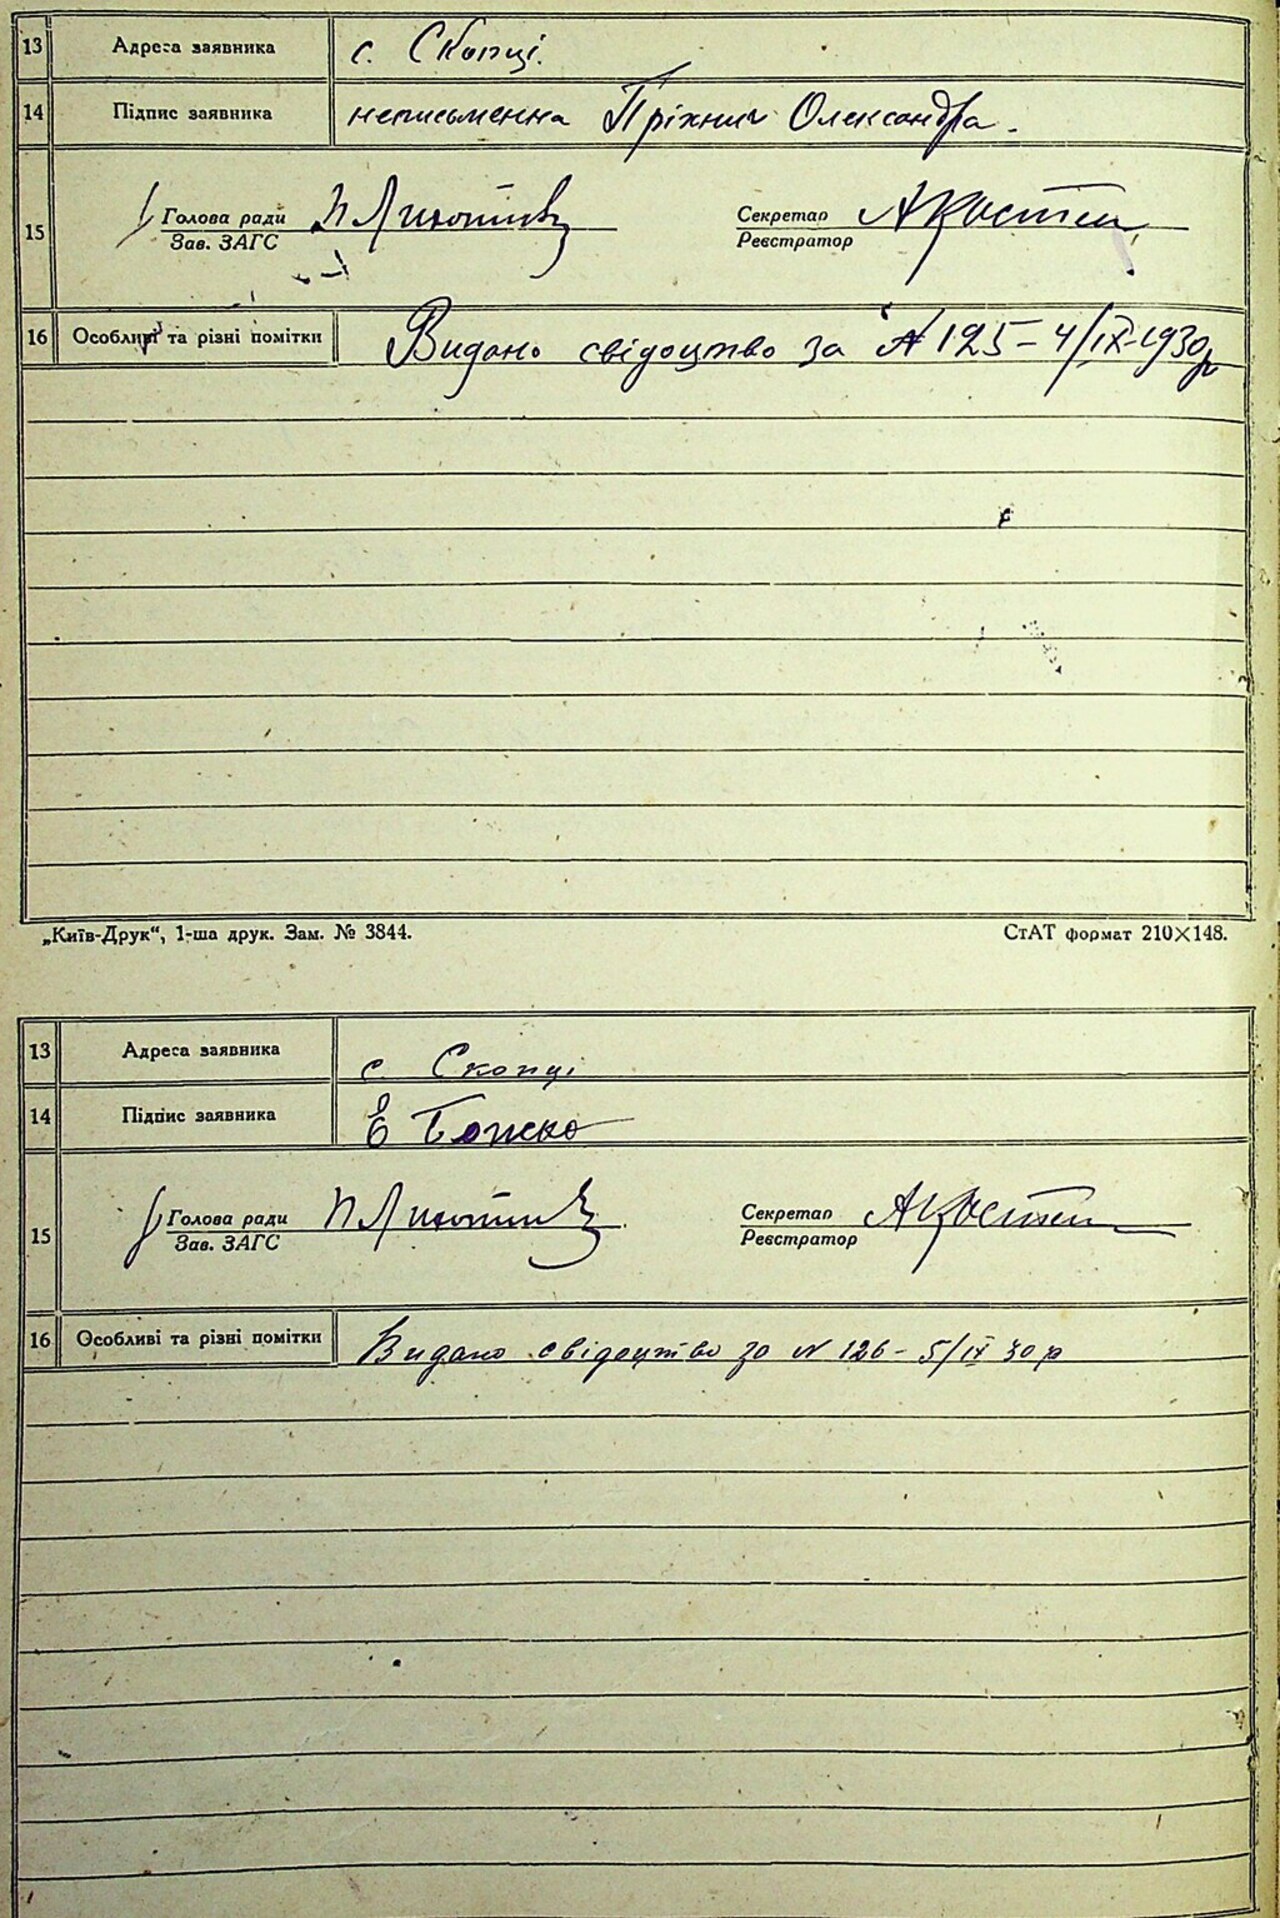 13 Адреса заявника с. Скопці.
14 Підпис заявника неписьменна Пріхнич Олександра.
15 Голова ради Секретар
Зав. ЗАГС Реєстратор
16 Особливі та різні помітки Видано свідоцтво за № 125 – 4/IX-1930р
„Київ-Друк“, 1-ша друк. Зам. № 3844. СтАТ формат 210×148.
13 Адреса заявника с Скопці
14 Підпис заявника Є Божко
15 Голова ради Секретар
Зав. ЗАГС Реєстратор
16 Особливі та різні помітки Видано свідоцтво за № 126 – 5/IX 30 р